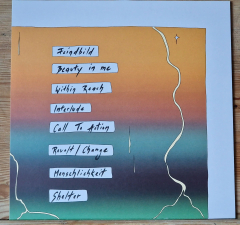 Feindbild
Beauty in me
Within Reach
Interlude
Call To Action
Revolt / Change
Menschlichkeit
Shelter